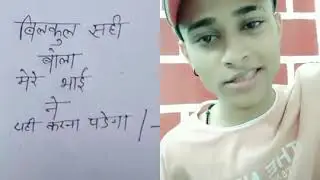 बिलकुल सही
बोला
मेरे भाई
ने
यही करना पडेगा /-